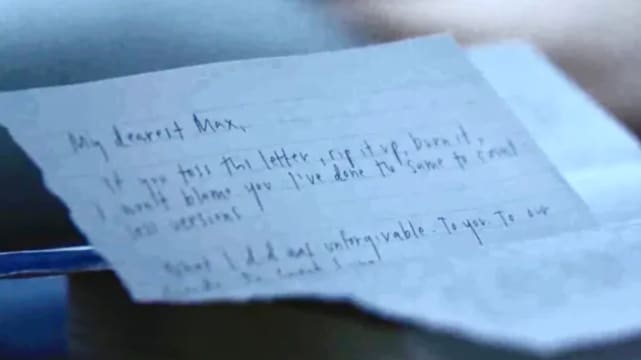 My dearest Max,
If you toss this letter, rip it up, burn it,
I won't blame you. I've done the same to count
less versions
What I did was unforgivable. To you. To our